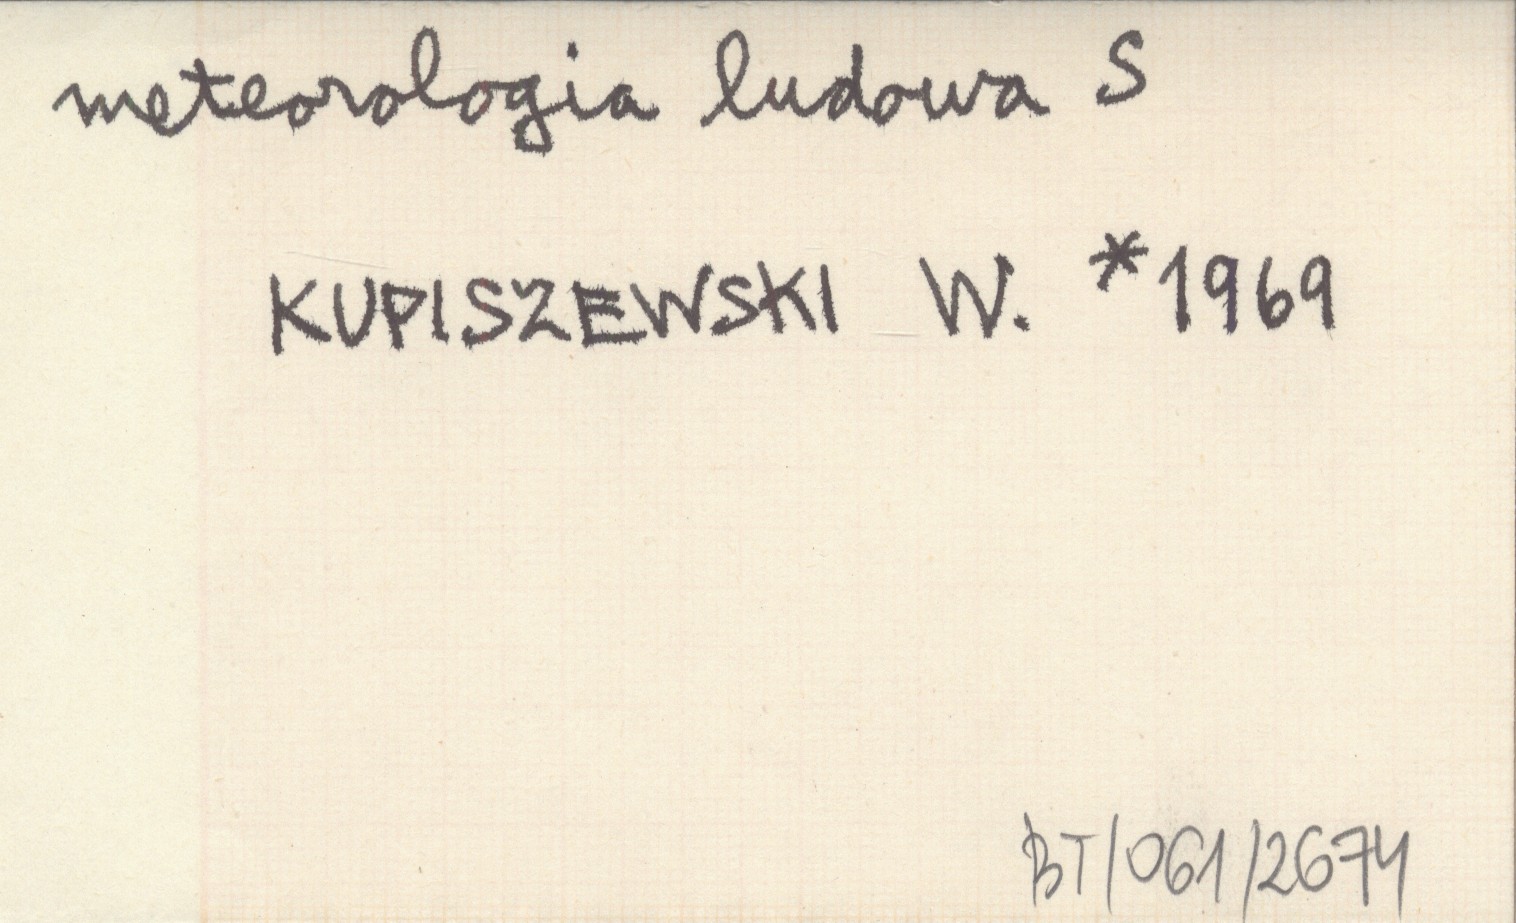 meteorologia ludowa S
KUPISZEWSKI W. *1969
BT/061/2674